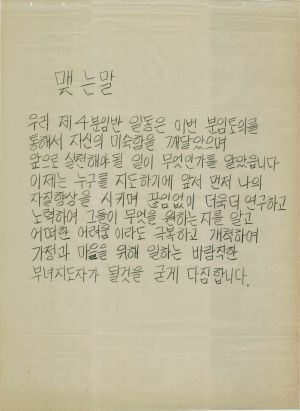 맺는말
우리 제4분임반 일동은 이번 분임토의를
통해서 자신의 미숙함을 깨달았으며
앞으로 실천해야될 일이 무엇인가를 알았습니다
이제는 누구를 지도하기에 앞서 먼저 나의
자질향상을 시키며 끊임없이 더욱더 연구하고
노력하여 그들이 무엇을 원하는지를 알고
어떠한 어려움이라도 극복하고 개척하여
가정과 마을을 위해 일하는 바람직한
부녀지도자가 될것을 굳게 다짐합니다.